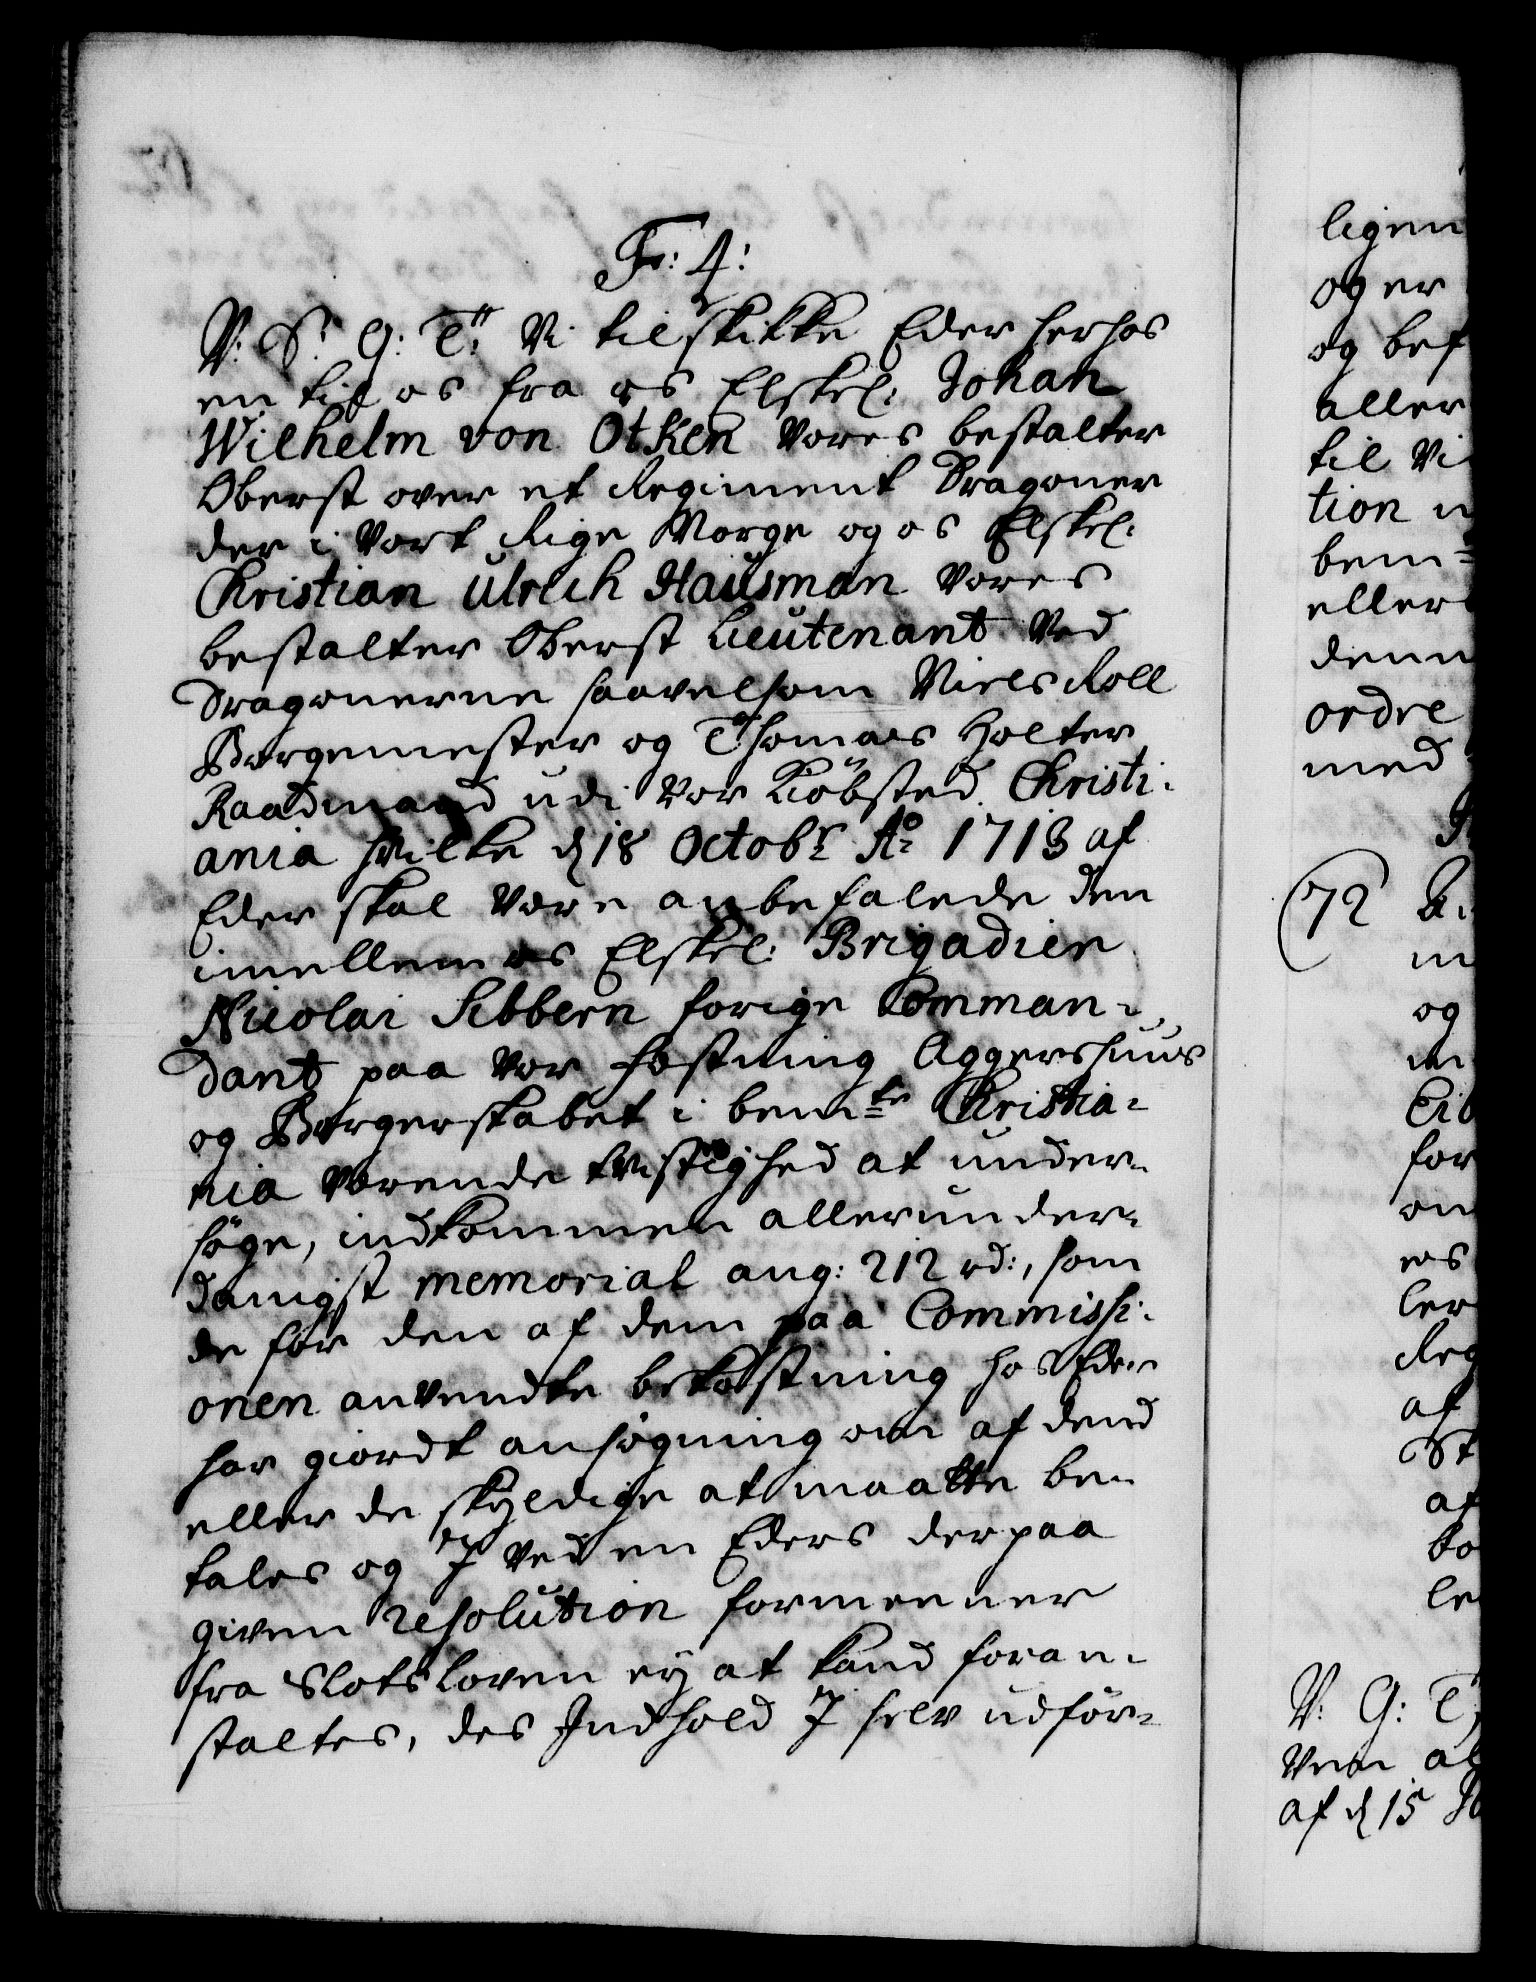 Fr: 4:
V: S: G: T: Vi tilskikke Eder herhos
en til os fra os Elskel: Johan
Wilhelm von Otken vores bestalter
Oberst over et Regiment Dragoner
der i vort Rige Norge og os Elskel:
Christian Ulrich Hausman vores
bestalter Oberst Lieutenant ved
Dragonerne saavelsom Niels Roll
Borgemester og Thomas Holter
Raadmand udi vor Kiöbsted Christi-
ania hvilke d 18 Octobr Ao 1713 af
Eder skal være anbefalede den
imellem os Elskel: Brigadier
Nicolai Sibbern forige Comman-
dant paa vor Fæstning Aggershuus
og Borgerskabet i bemte Christia-
nia værende tvistighed at under-
söge, indkommen allerunder-
danigst memorial ang: 212 rd:, som
de for den af dem paa Commissi-
onen anvendte bekostning hos Eder
har giordt ansögning om af dend
eller de skyldige at maatte be-
tales og I ved en Eders derpaa
given resolution formeener
fra Slotsloven ey at kand foran-
staltes, des Indhold I selv udför-
ligen
og er
og bef
aller
til Vi
tion
bem=
eller
denn
ordre
med
(72
og
for
af
St
af
le
V: G: T:
Ven al
af d 15